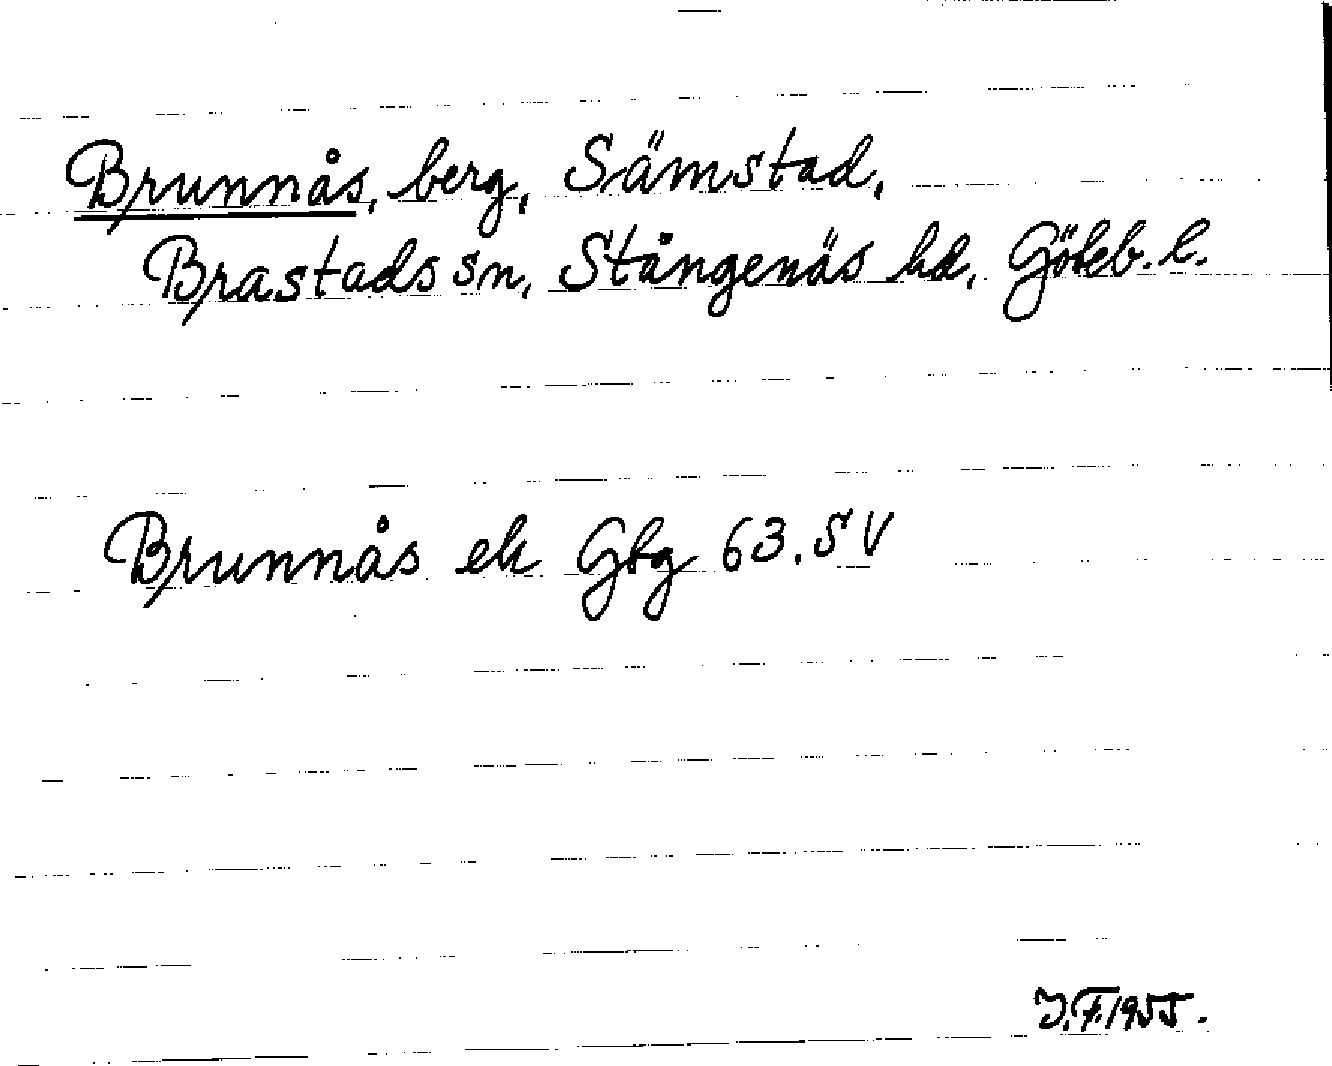 Brunnås, berg, Sämstad,
Brastads sn, Stångenäs hd, Göteb. l.
Brunnås ek Gbg 63. S V
J.F. 1955.